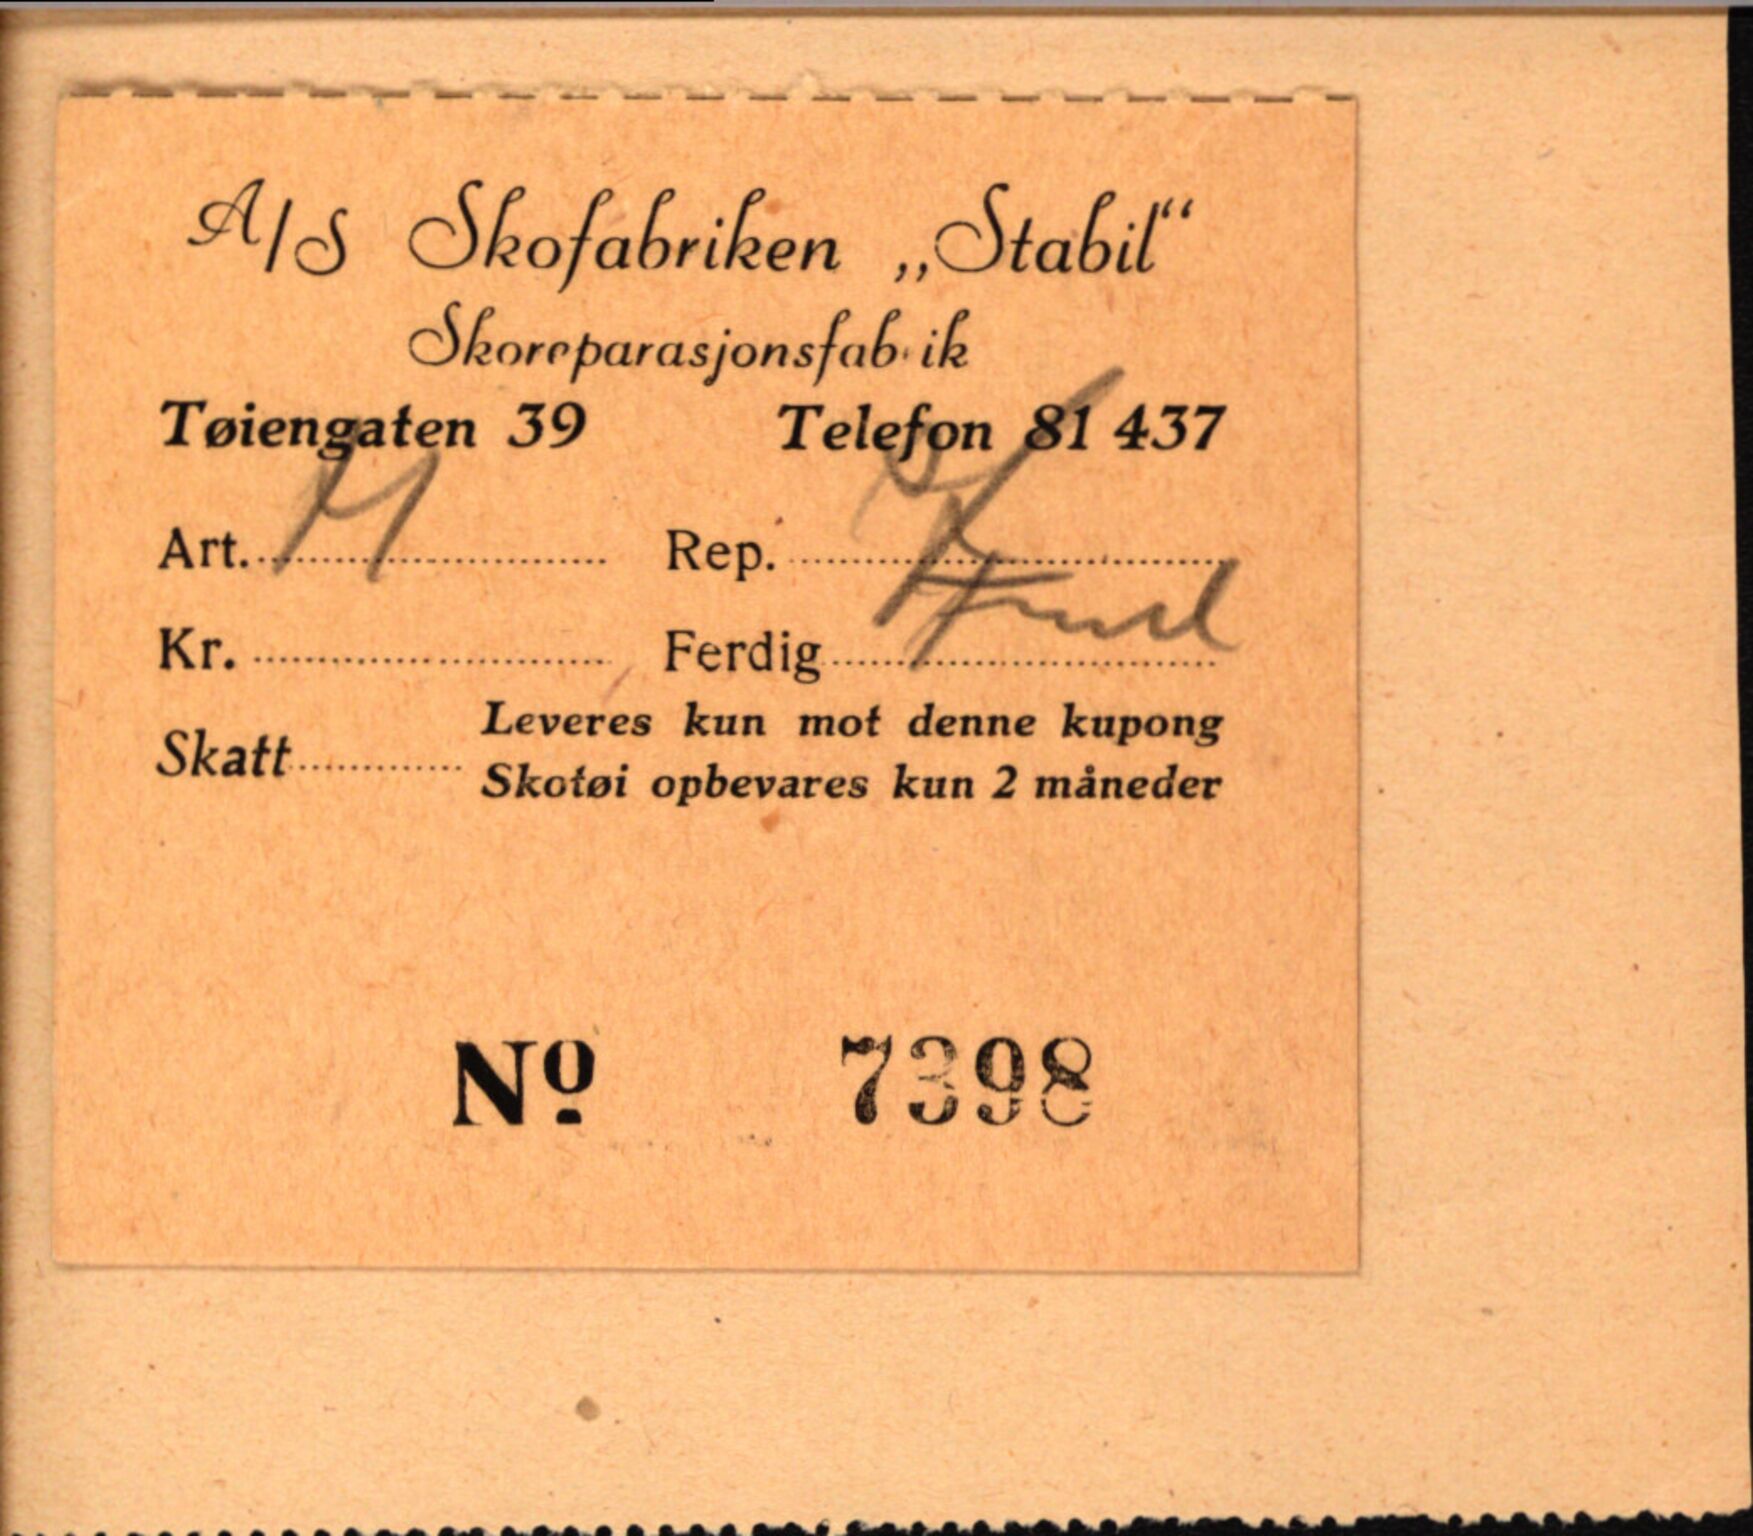 A/S Skofabriken „Stabil“
Skoreparasjonsfabrik
Tøiengaten 39 Telefon 81 437
Art. Rep.
Kr. Ferdig
Skatt
Leveres kun mot denne kupong
Skotøi opbevares kun 2 måneder
Nº 7398